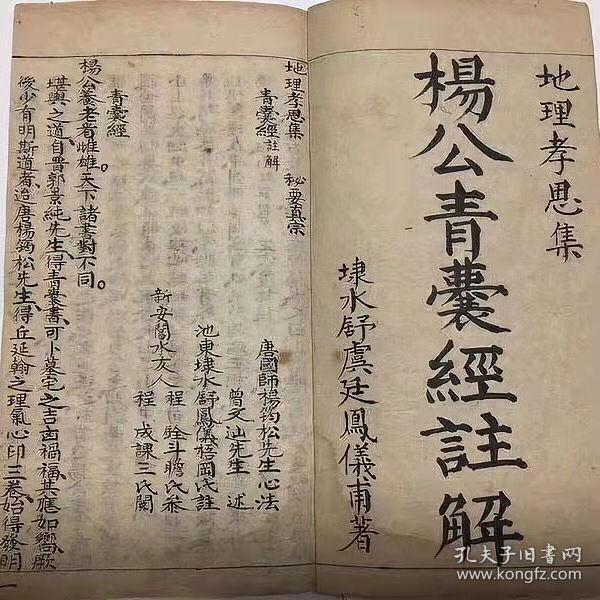 地理孝思集
楊公青囊經註解
埭水舒虞廷鳳儀甫著
地理孝思集　秘要真宗
青囊經註解
唐國師楊筠松先生心法
曾文辿先生　述
池東埭水舒鳳儀梧岡氏註
程　銓斗瞻氏參
新安閶水友人
程　成課三氏閱
青囊經
楊公養老看雌雄。天下諸書對不同。
堪輿之道、自晋郭景純先生、得青囊書、可卜墓宅之吉凶禍福、其應如嚮、厥
後少有明斯道者、迨唐楊筠松先生、得丘延翰之理氣心印三卷、始得發明
孔夫子旧书网
www.kongfz.com